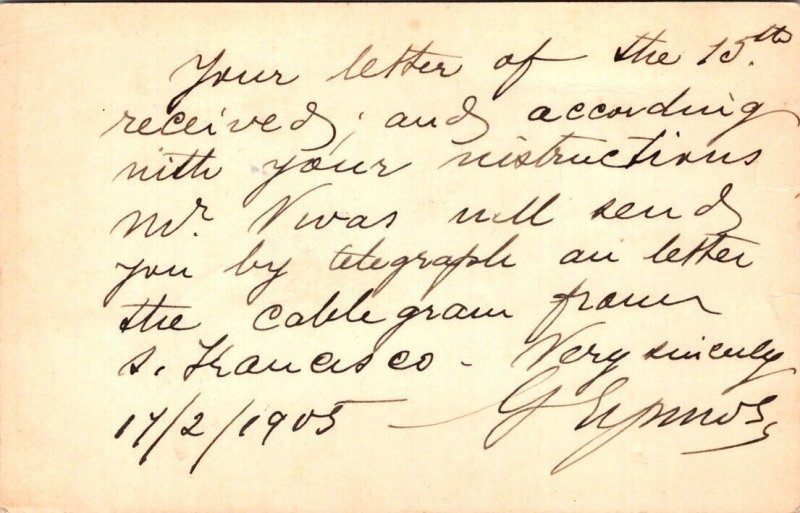 Your letter of the 15th.
received; and according
with your instructions
Mr. Vivas will send
you by telegraph an letter
the cablegram from
S. Francisco - Very sincerely
17/2/1905 - G